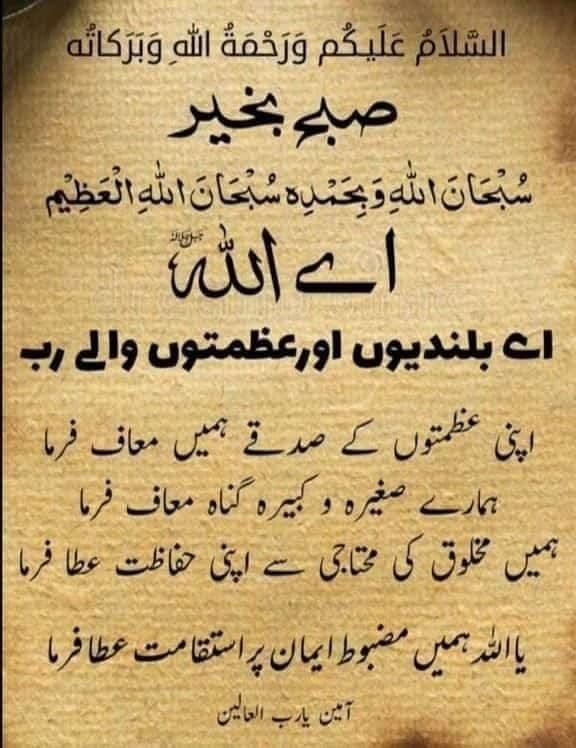 السَّلاَمُ عَلَيكُم وَرَحْمَةُ اللهِ وَبَرَكاتُه
صبح بخیر
سُبْحَانَ اللهِ وَبِحَمْدِہ سُبْحَانَ اللهِ الْعَظِیْم
اے اللہ ﷻ
اے بلندیوں اور عظمتوں والے رب
اپنی عظمتوں کے صدقے ہمیں معاف فرما
ہمارے صغیرہ و کبیرہ گناہ معاف فرما
ہمیں مخلوق کی محتاجی سے اپنی حفاظت عطا فرما
یااللہ ہمیں مضبوط ایمان پر استقامت عطا فرما
آمین یارب العالین